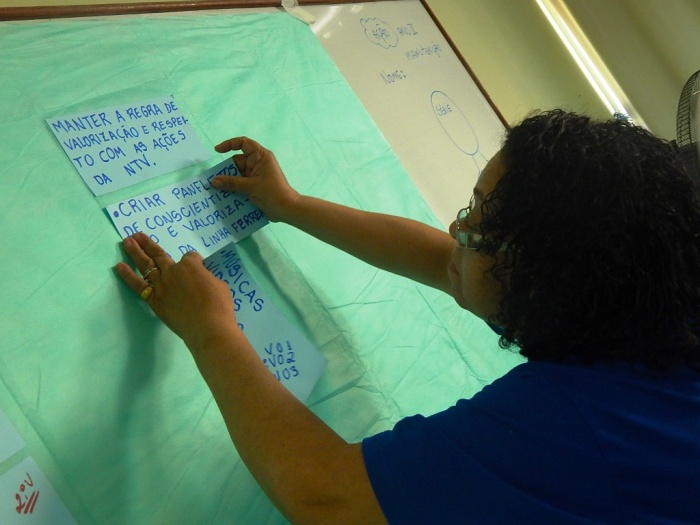 MANTER A REGRA DE
VALORIZAÇÃO E RESPEI-
TO COM AS AÇÕES
DA NTV.
• CRIAR PANFLETOS
DE CONSCIENTIZA
E VALORIZA
DA LINHA FERREA
MÚSICAS
VO1
VO2
VO3
Nome:
2º V